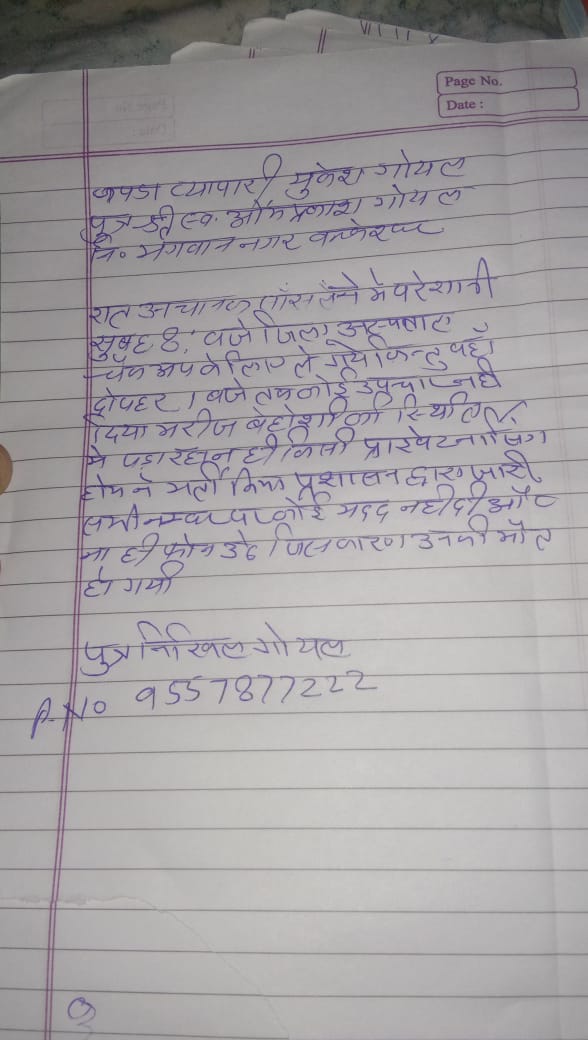 Page No.
Date :
कपडा व्यापारी मुकेश गोयल
पुत्र श्री स्व. ओमप्रकाश गोयल
नि० भगवान नगर
रात अचानक साँस लेने मे परेशानी
सुबह 8: बजे जिला अस्पताल
चैकअप के लिए ले गये किन्तु वहाँ
दोपहर 1 बजे तक कोई उपचार नही
दिया मरीज बेहोशी की स्थिति
मे पडा रहा न ही किसी प्राइवेट नर्सिग
होम ने भर्ती किया प्रशासन द्वारा जारी
सभी नम्बर पर कोई मदद नही दी और
ना ही फोन उठे जिस कारण उनकी मौत
हो गयी
पुत्र निखिल गोयल
P.No 9557877222